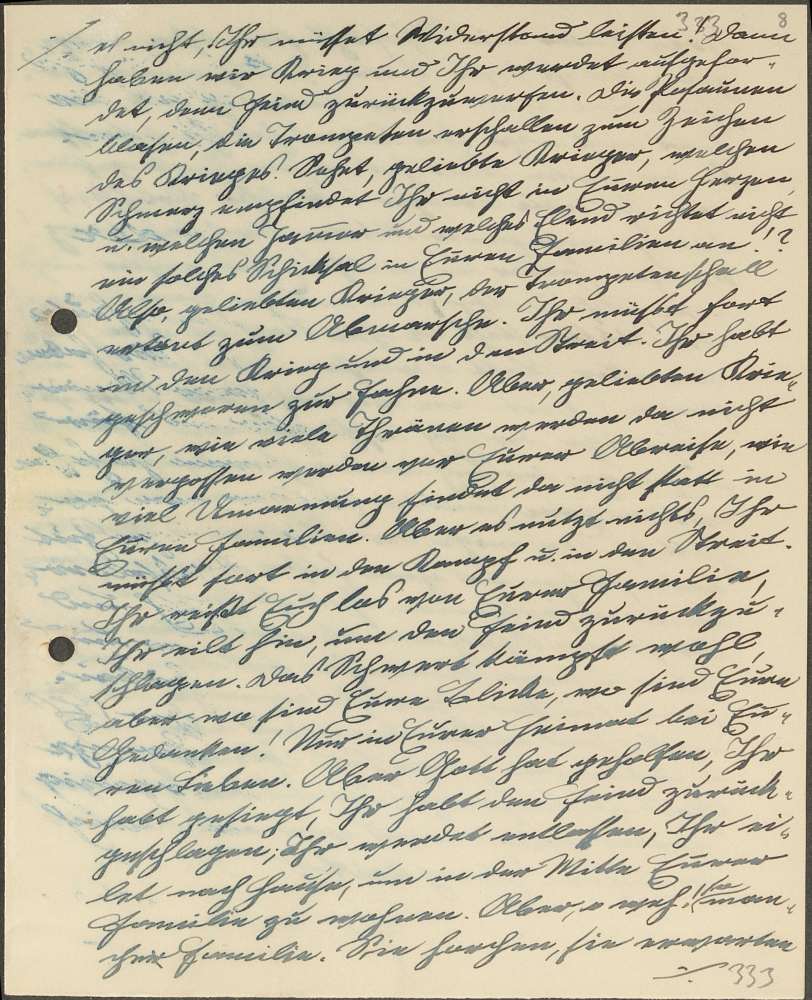 333 8
./. es nicht, Ihr müsset Widerstand leisten! Dann
haben wir Krieg und Ihr werdet aufgefor-
det, dem Feind zurückzuwerfen. Die Posaunen
blasen, die Trompeten erschallen zum Zeichen
des Krieges. Sehet, geliebte Krieger, welchen
Schmerz empfindet Ihr nicht in Euren Herzen
u. welchen Jammer und welches Elend richtet nicht
ein solches Schicksal in Euren Familien an!?
Also geliebten Krieger, der Trompetenschall
ertönt zum Abmarsche. Ihr müsst fort
in den Krieg und in den Streit. Ihr habt
geschworen zur Fahne. Aber, geliebten Krie-
ger, wie viele Thränen werden da nicht
vergossen werden vor Eurer Abreise, wie
viel Umarmung findet da nicht statt in
Euren Familien. Aber es nutzt nichts, Ihr
müsst fort in den Kampf u. in den Streit.
Ihr reißt Euch los von Eurer Familie,
Ihr eilt hin, um den Feind zurückzu-
schlagen. Das Schwert kämpft wohl,
aber wo sind Eure Blicke, wo sind Eure
Gedanken! Nur in Eurer Heimat bei Eu-
ren Lieben. Aber Gott hat geholfen, Ihr
habt gesiegt, Ihr habt den Feind zurück-
geschlagen; Ihr werdet entlassen, Ihr ei-
let nach Hause, um in der Mitte Eurer
Familie zu wohnen. Aber, o weh! man-
cher Familie. Sie horchen, sie erwarten
./. 333